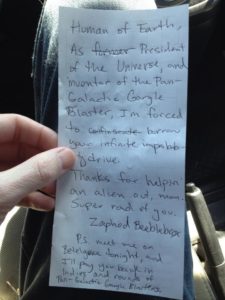 Human of Earth,
As former President
of the Universe, and
inventor of the Pan-
Galactic Gargle
Blaster, I'm forced
to confiscate borrow
your infinite improbabi-
lity drive.
Thanks for helpin'
an alien out, man.
Super rad of you.
Zaphod Beeblebrox
P.S. meet me on
Betelgeuse tonight, and
I'll pay you back in
Indigs and rounds of
Pan-Galactic Gargle Blasters.